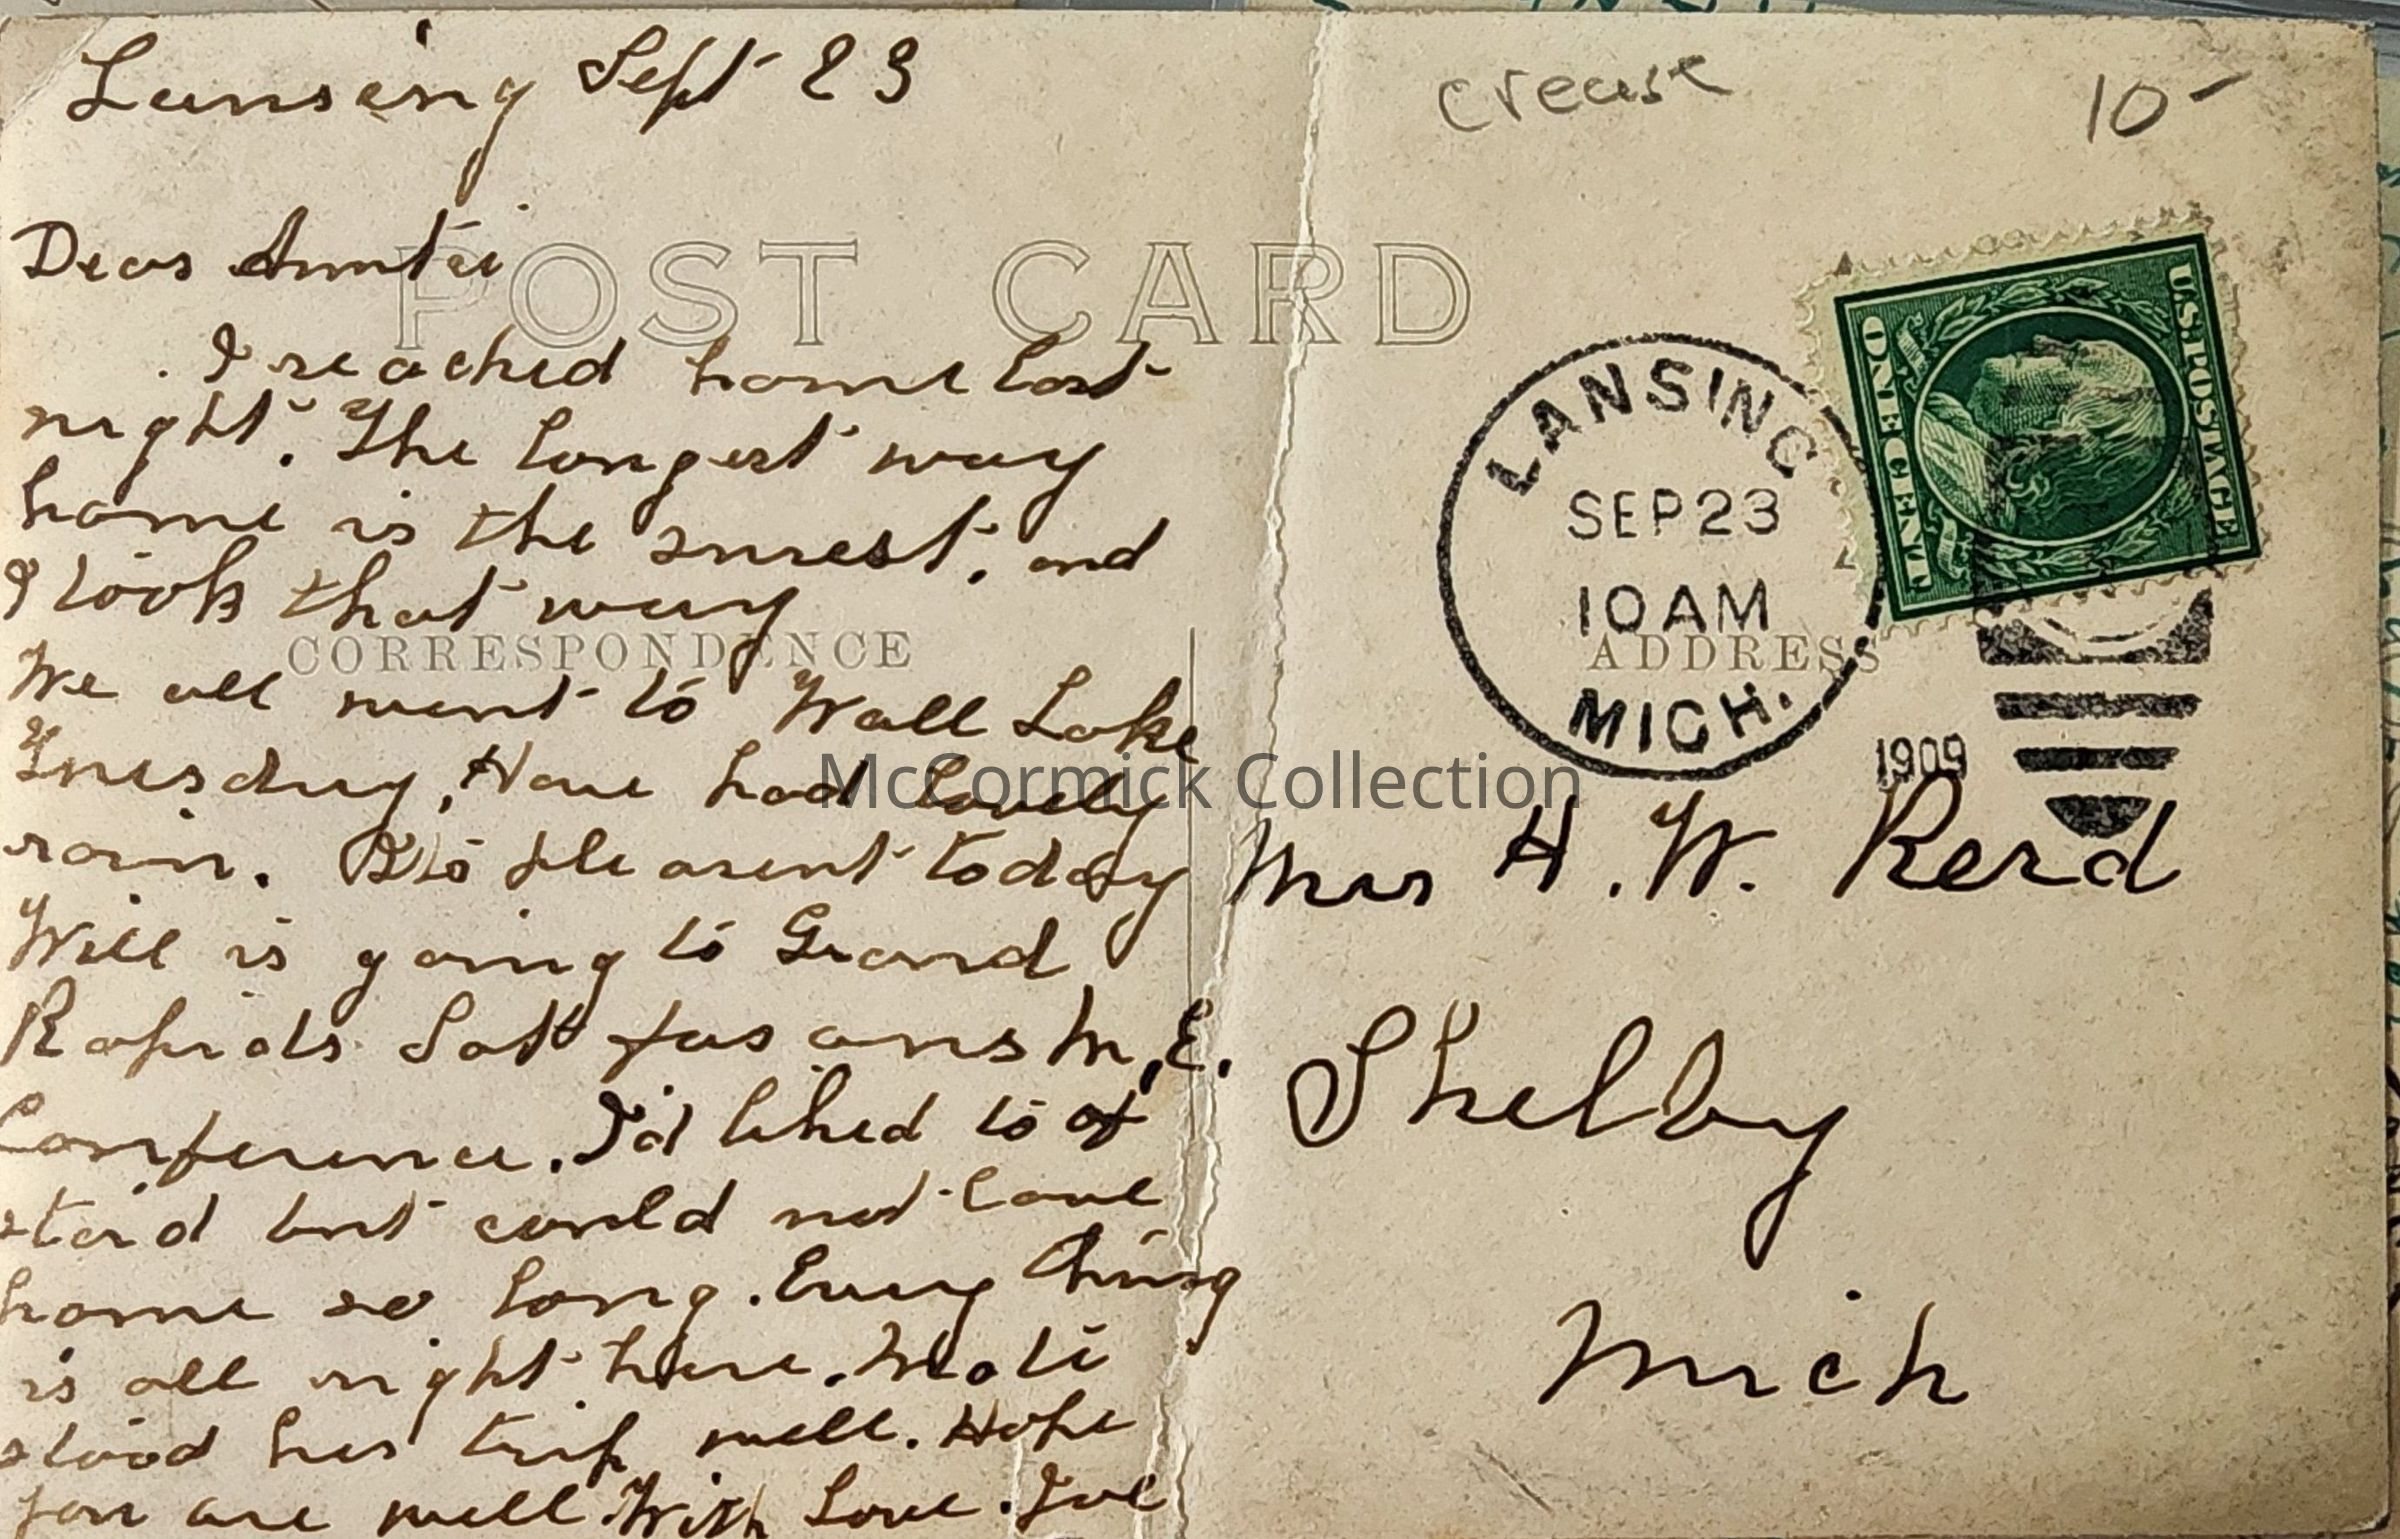 Lansing Sept 23
crease
10-
Dear Auntie
POST CARD
I reached home last
night. The longest way
home is the surest, and
I took that way
CORRESPONDENCE
We all went to Wall Lake
Tuesday, Have had lovely
rain. pleasent today
Will is going to Grand
Rapids Sat for M.E.
Conference. I'd liked to of
staid but could not leave
home so long. Every thing
is all right here.
stood her trip well. Hope
you are well With Love.
LANSING
SEP 23
10 AM
MICH.
1909
U.S. POSTAGE
ONE CENT
ADDRESS
Mrs H. W. Reid
Shelby
Mich
McCormick Collection